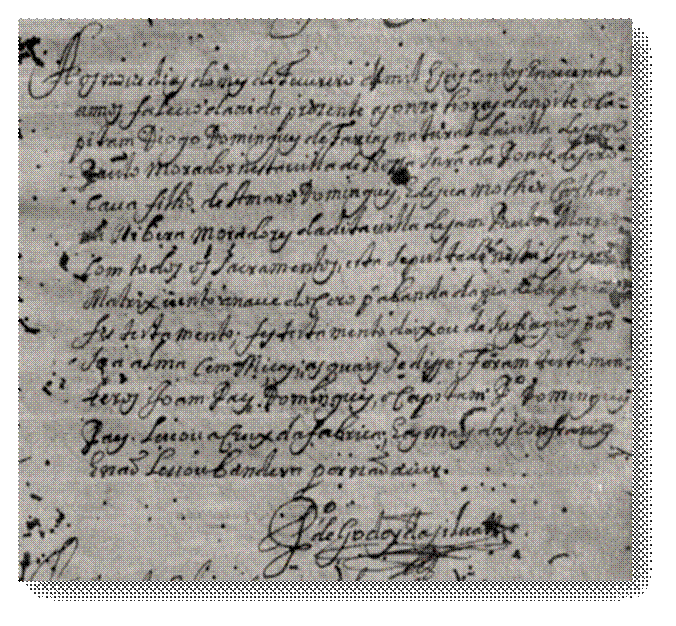 Aos nove dias do mes de Fevereiro de mil e seis centos e noventa
annos faleceo da vida presente as onze horas da noite o Ca-
pitam Diogo Domingues de Faria, natural da villa de sam
Paulo Morador nesta villa de nossa Snra da Ponte de soro-
cava filho de Amaro Domingues, e de sua molher Cathari
na Ribera moradores da dita villa de sam Paulo Morreo
com todos os Sacramentos, esta sepultado nesta Igreja
Matrix dentro na nave do pa a banda da pia de baptizar
fes testamento, deixou de sufragios por
sua alma cem Missas, as quais se disse; Foram testamen-
teiros Joam Pay Domingues, o Capitam Po Domingues
Pay. Levou a Crux da fabrica, e as mais das confrarias
E naõ Levou bandeira por naõ aver.
Po de Godoy da silva